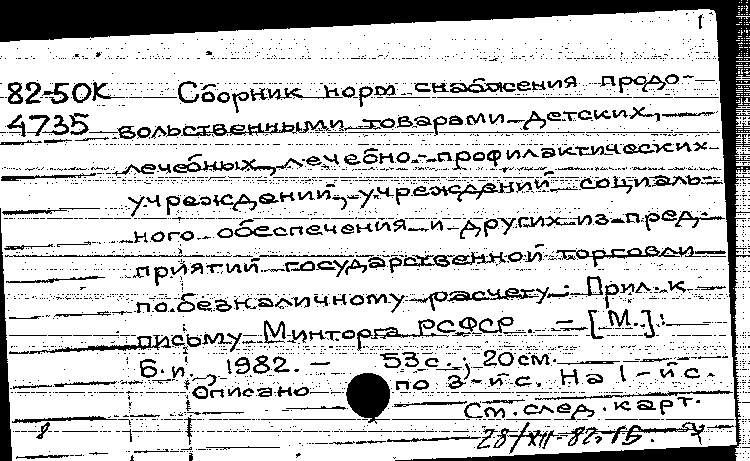 1
82-50К Сборник норм снабжения продо-
4735 вольственными товарами детских,
лечебных, лечебно-профилактических
учреждений, учреждений социаль-
ного обеспечения и других из пред-
приятий государственной торговли
по безналичному расчету: Прил. к
письму Минторга РСФСР. - [М.]:
Б.и., 1982. - 53 с.; 20 см.
Описано по 3-й с. На 1-й с.
См. след. карт.
8 28/XII-82